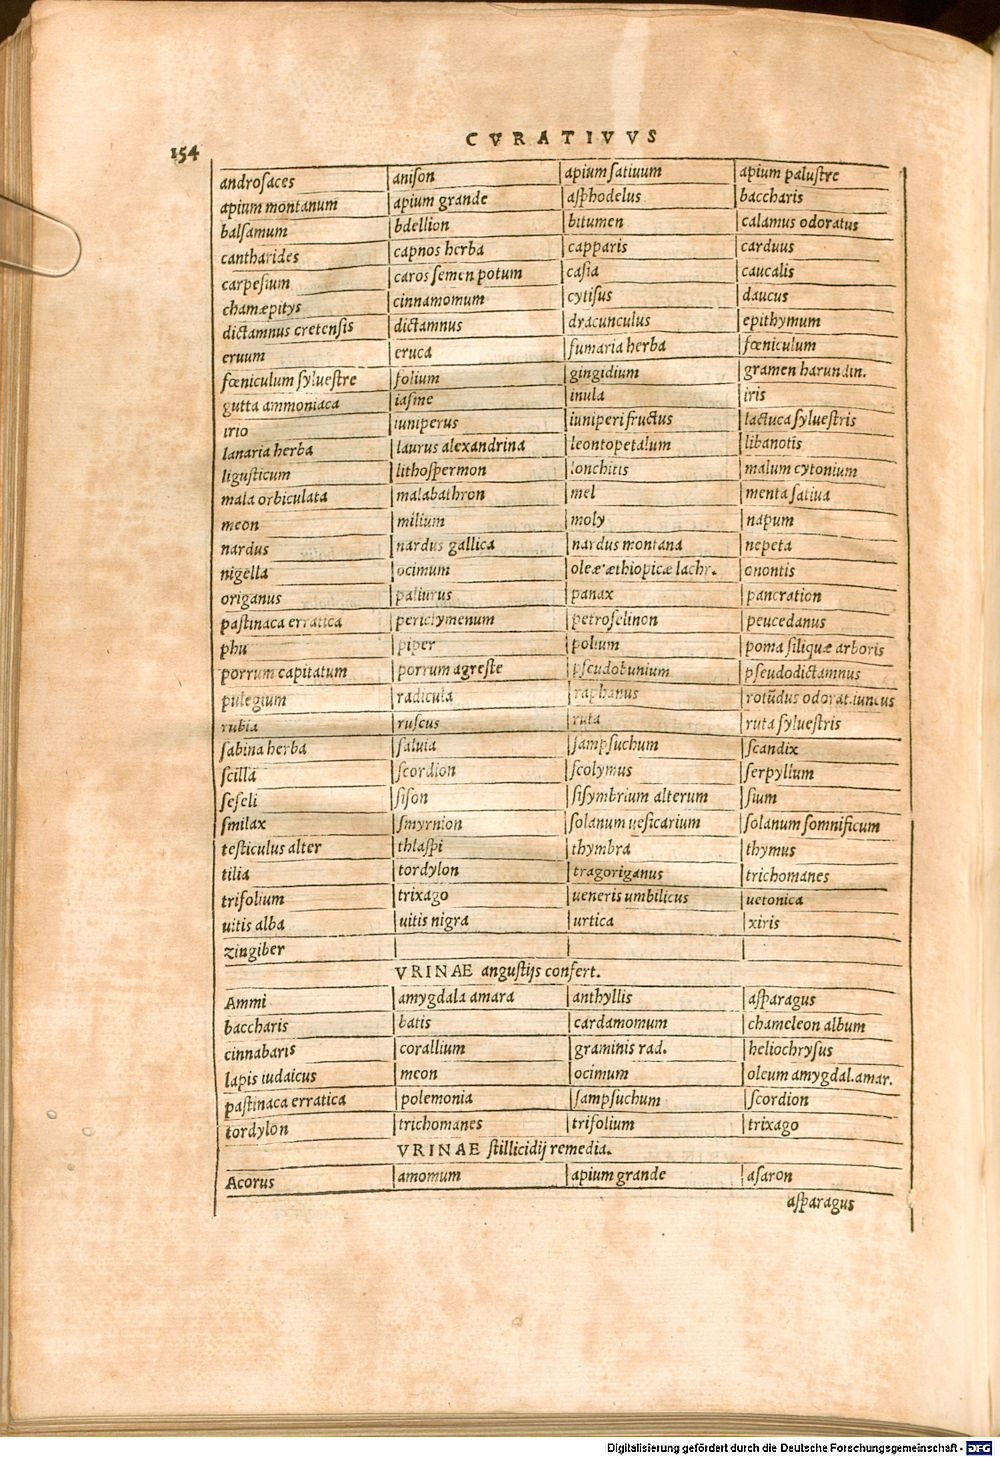 154
CVRATIVVS
androsaces | anison | apium satiuum | apium palustre
apium montanum | apium grande | asphodelus | baccharis
balsamum | bdellion | bitumen | calamus odoratus
cantharides | capnos herba | capparis | carduus
carpesium | caros semen potum | casia | caucalis
chamæpitys | cinnamomum | cytisus | daucus
dictamnus cretensis | dictamnus | dracunculus | epithymum
eruum | eruca | fumaria herba | fœniculum
fœniculum syluestre | folium | gingidium | gramen harundin.
gutta ammoniaca | iasme | inula | iris
irio | iuniperus | iuniperi fructus | lactuca syluestris
lanaria herba | laurus alexandrina | leontopetalum | libanotis
ligusticum | lithospermon | lonchitis | malum cytonium
mala orbiculata | malabathron | mel | menta satiua
meon | milium | moly | napum
nardus | nardus gallica | nardus montana | nepeta
nigella | ocimum | oleæ æthiopicæ lachr. | onontis
origanus | paliurus | panax | pancration
pastinaca erratica | periclymenum | petroselinon | peucedanus
phu | piper | polium | poma siliquæ arboris
porrum capitatum | porrum agreste | pseudobunium | pseudodictamnus
pulegium | radicula | raphanus | rotūdus odorat.iuncus
rubia | ruscus | ruta | ruta syluestris
sabina herba | saluia | sampsuchum | scandix
scilla | scordion | scolymus | serpyllum
seseli | sison | sisymbrium alterum | sium
smilax | smyrnion | solanum uesicarium | solanum somnificum
testiculus alter | thlaspi | thymbra | thymus
tilia | tordylon | tragoriganus | trichomanes
trifolium | trixago | ueneris umbilicus | uetonica
uitis alba | uitis nigra | urtica | xiris
zingiber
VRINAE angustijs confert.
Ammi | amygdala amara | anthyllis | asparagus
baccharis | batis | cardamomum | chameleon album
cinnabaris | corallium | graminis rad. | heliochrysus
lapis iudaicus | meon | ocimum | oleum amygdal.amar.
pastinaca erratica | polemonia | sampsuchum | scordion
tordylon | trichomanes | trifolium | trixago
VRINAE stillicidij remedia.
Acorus | amomum | apium grande | asaron
asparagus
Digitalisierung gefördert durch die Deutsche Forschungsgemeinschaft - DFG